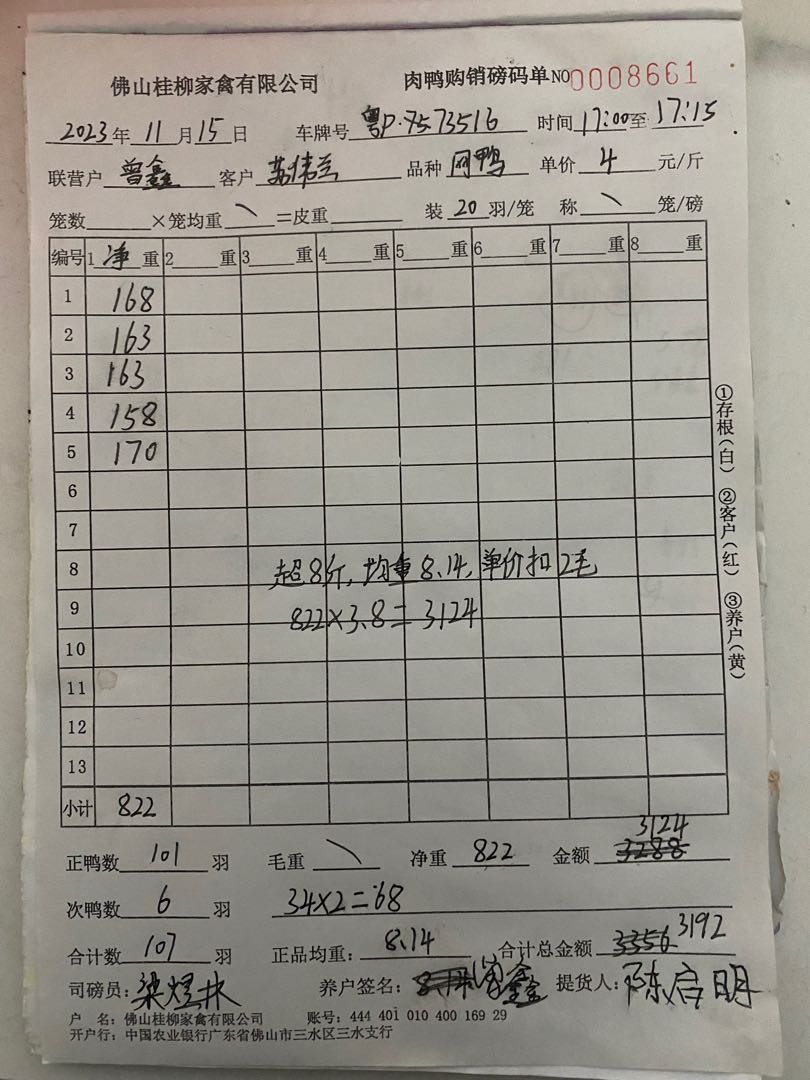 佛山桂柳家禽有限公司 肉鸭购销磅码单 NO 0008661
2023年 11月 15日 车牌号 粤P·7573516 时间 17:00至 17:15
联营户 曾鑫 客户 苏伟兰 品种 网鸭 单价 4 元/斤
笼数 ×笼均重 \ =皮重 装 20 羽/笼 称 \ 笼/磅
编号 1 净 重 2 重 3 重 4 重 5 重 6 重 7 重 8 重
1 168
2 163
3 163
4 158
5 170
6
7
8 超8斤,均重8.14,单价扣2毛
9 822×3.8=3124
10
11
12
13
小计 822
①存根(白) ②客户(红) ③养户(黄)
3124
正鸭数 101 羽 毛重 \ 净重 822 金额 3288
次鸭数 6 羽 34×2=68
合计数 107 羽 正品均重: 8.14 合计总金额 3356 3192
司磅员: 梁煜林 养户签名: 曾鑫 提货人: 陈启明
户 名: 佛山桂柳家禽有限公司 账号: 444 401 010 400 169 29
开户行: 中国农业银行广东省佛山市三水区三水支行